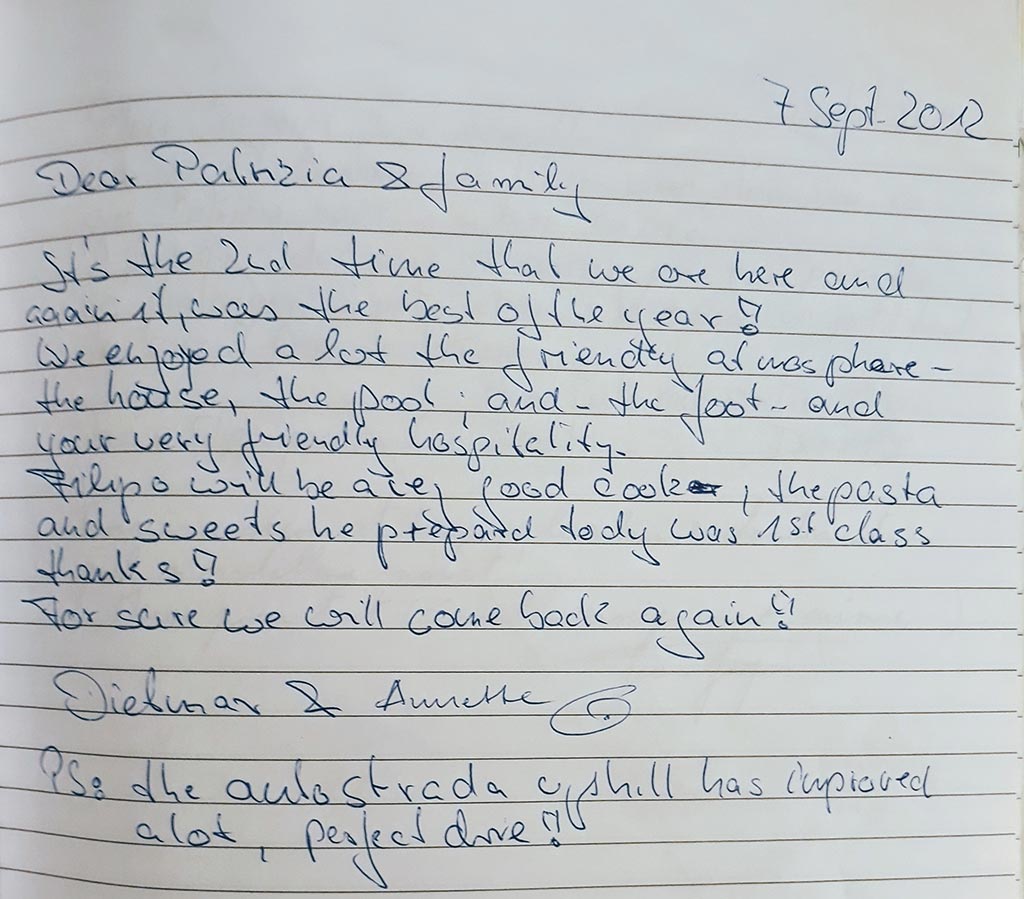 7 Sept. 2012
Dear Patrizia & family
It's the 2nd time that we are here and
again it, was the best of the year!
We enjoyed a lot the friendly atmosphere -
the house, the pool, and - the foot - and
your very friendly hospitality.
Filipo will be a very good cook, the pasta
and sweets he prepared tody was 1st class
thanks!
For sure we will come back again!!
Dietmar & Annette
PS: the autostrada uphill has improved
alot, perfect drive!!